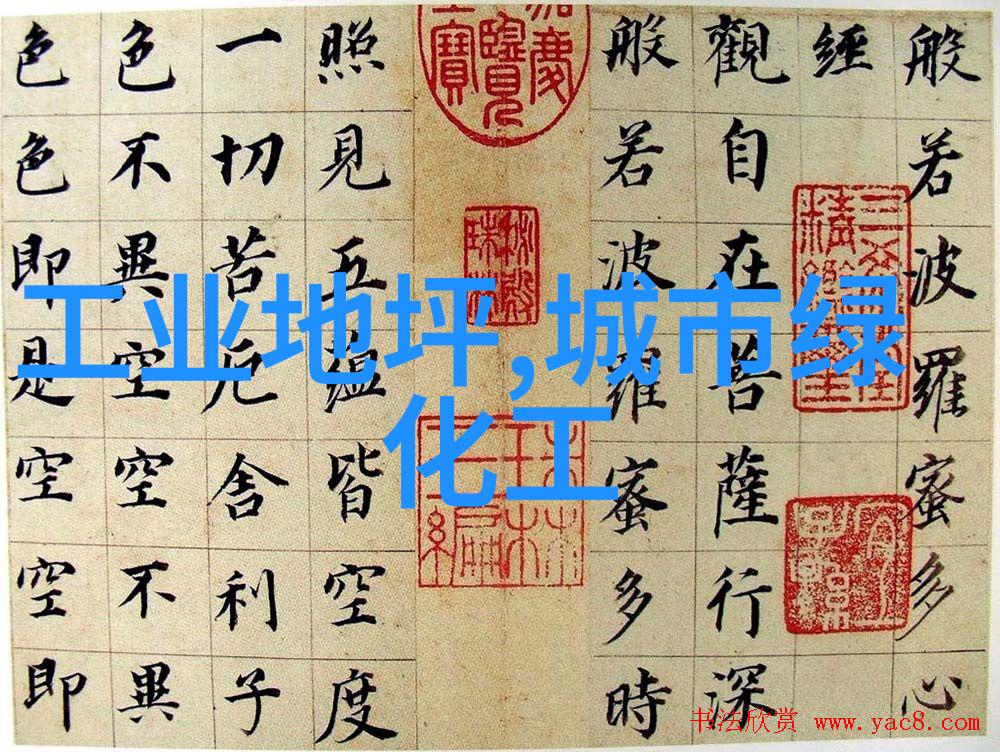 般若波羅蜜多心
經
觀自在菩薩行深
般若波羅蜜多時
照見五蘊皆空度
一切苦厄舍利子
色不異空空不異
色色即是空空即
工业地坪,城市绿
化工
三希堂精鑑璽
秘殿珠林
书法欣赏 www.yac8.com